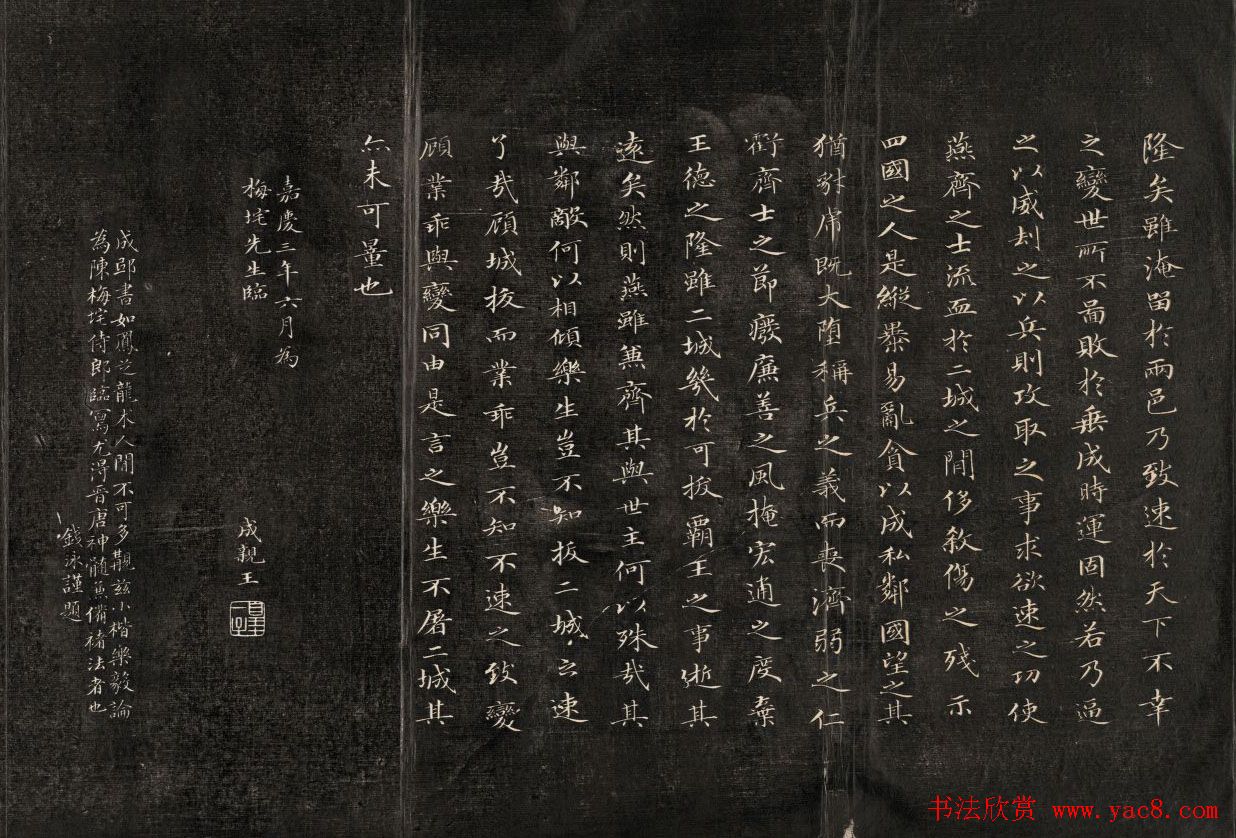 隆矣雖淹留於兩邑乃致速於天下不幸
之變世所不啚敗於垂成時運固然若乃逼
之以威刼之以兵則攻取之事求欲速之功使
燕齊之士流血於二城之閒侈敘傷之殘示
四國之人是縱暴易亂貪以成私鄰國望之其
猶豺虎既大墮稱兵之義而喪濟弱之仁
虧齊士之節癈廉善之風掩宏通之度棄
王德之隆雖二城幾於可拔霸王之事逝其
遠矣然則燕雖兼齊其與世主何以殊哉其
與鄰敵何以相傾樂生豈不知拔二城之速
了哉顧城拔而業乖豈不知不速之致變
顧業乖與變同由是言之樂生不屠二城其
亦未可量也
嘉慶三年六月為
梅垞先生臨
成親王
皇十一子
成邸書如鳳之龍水人間不可多覯茲小楷樂毅論
為陳梅垞侍郎臨寫尤得晉唐神髓兼備褚法者也
錢泳謹題
书法欣赏 www.yac8.com